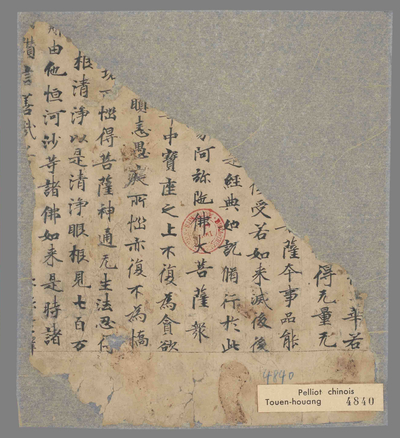 華若
得无量无
薩本事品能
受若如来滅後後
經典如說脩行於此
阿弥陁佛大菩薩衆
中寶座之上不復為貪欲
恚愚癡所惱亦復不為憍
所惱得菩薩神通无生法忍
根清淨以是清淨眼根見七百万
由他恒河沙等諸佛如来是時諸
言善哉
4840
Pelliot chinois
Touen-houang 4840